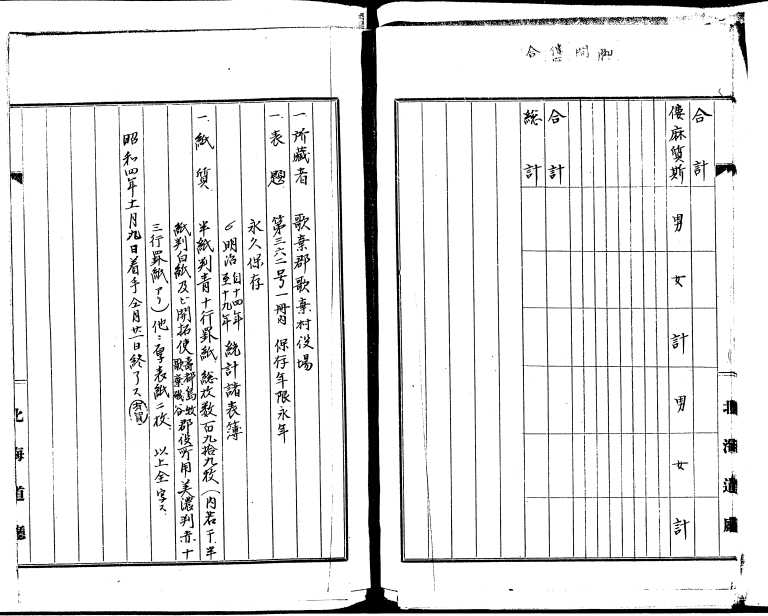 合計
僂麻質斯
男
女
計
男
女
計
合計
総計
北海道廳
一、所藏者　歌棄郡歌棄村役場
一、表題　第三六二号一冊内　保存年限永年
永久保存
明治自十四年至十九年　統計諸表簿
一、紙質　半紙判青十行罫紙　総枚数百九拾九枚（内若干半
紙判白紙及ビ開拓使壽都島牧歌棄磯谷郡役所用美濃判赤十
三行罫紙アリ）他ニ厚表紙二枚　以上全写ス
昭和四年十一月九日着手全月廿一日終了ス
北海道廳